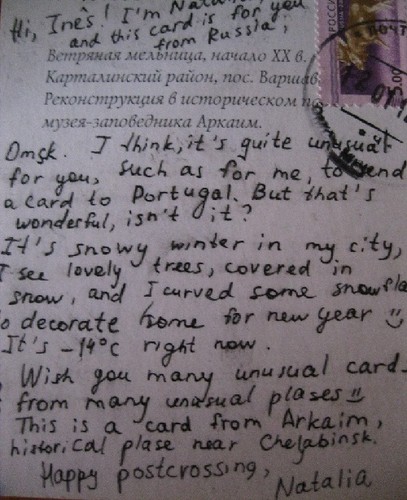 Hi, Ines! I'm Natalia
and this card is for you
from Russia,
Ветряная мельница, начало XX в.
Карталинский район, пос. Варшав
Реконструкция в историческом
музея-заповедника Аркаим.
Omsk. I think, it's quite unusual
for you, such as for me, to send
a card to Portugal. But that's
wonderful, isn't it?
It's snowy winter in my city,
I see lovely trees, covered in
snow, and I curved some snowfla
to decorate home for new year
It's -14°C right now.
Wish you many unusual card
from many unusual plases
This is a card from Arkaim,
historical plase near Chelabinsk.
Happy postcrossing,
Natalia
РОССИ
ПОЧТ